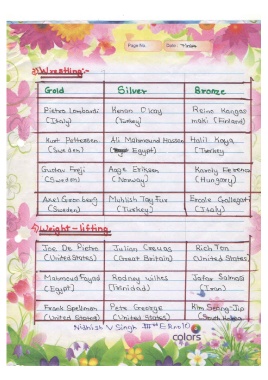 Page No.
Date :
3) Wrestling:-
Gold Silver Bronze
Pietro Lombardi Kenan Olcay Reino Kangas
(Italy) (Turkey) maki (Finland)
Kurt Pettersen Ali Mahmoud Hassan Halil Kaya
(Sweden) Egypt) (Turkey
Gustav Freji Aage Eriksen Karoly Ferencz
(Sweden) (Norway) (Hungary)
Axel Gronberg Muhlish Tay Fur Ercole Gallegati
(Sweden) (Turkey) (Italy)
Weight-lifting
Joe De Pietro Julian Creus Rich Tom
(United States) (Great Britain) (United States)
Mahmoud Fayad Rodney wilkes Jafar Salmasi
(Egypt) (Trinidad) (Iran)
Frank Spellman Pete George Kim Seong-Jip
(United States) (United States) (South Korea
Nidhish V Singh IIIrd E Rno 10
colors